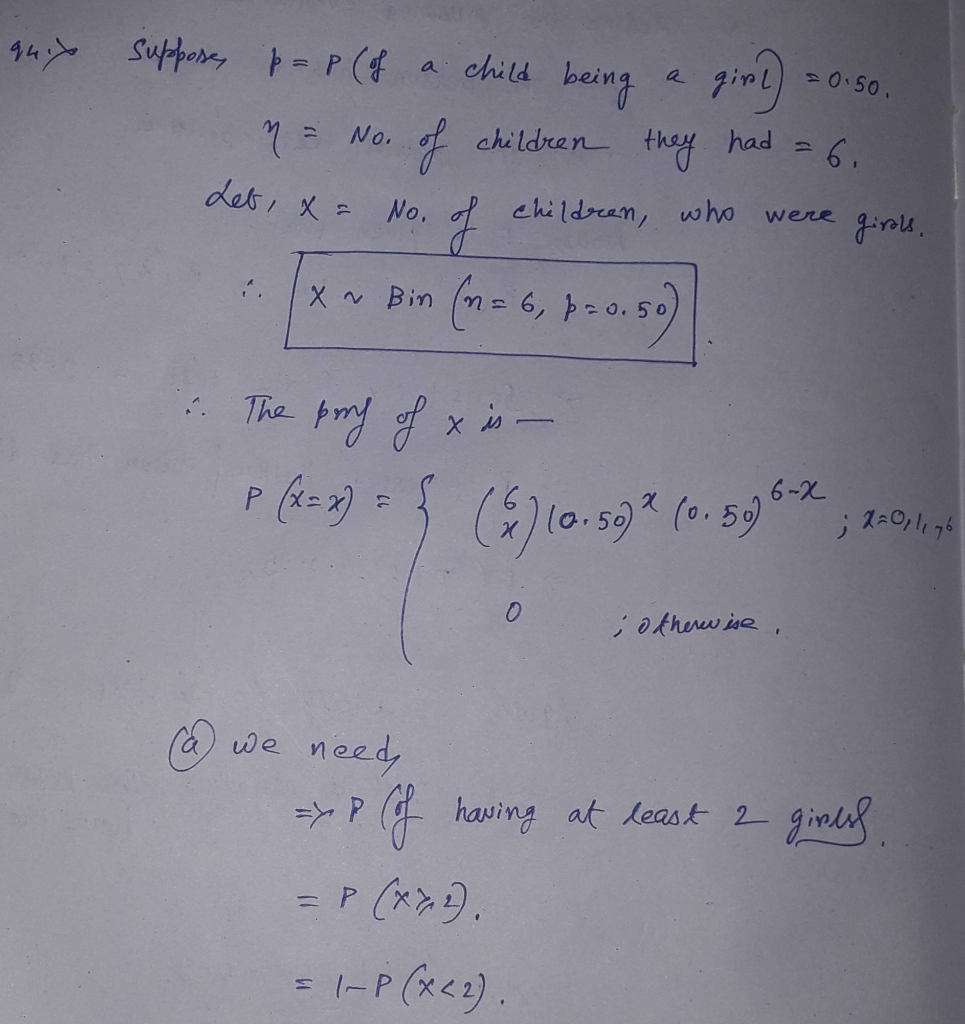 q4.> Suppose, p = P (of a child being a girl) = 0.50.
n = No. of children they had = 6.
Let, X = No. of children, who were girls.
∴ X ~ Bin (n = 6, p = 0.50).
∴ The pmf of X is —
P (X=x) = { (6 x) (0.50)^x (0.50)^6-x ; x=0,1,,6
0 ; otherwise.
(a) we need,
=> P (of having at least 2 girls).
= P (X ≥ 2).
= 1 - P (X < 2).